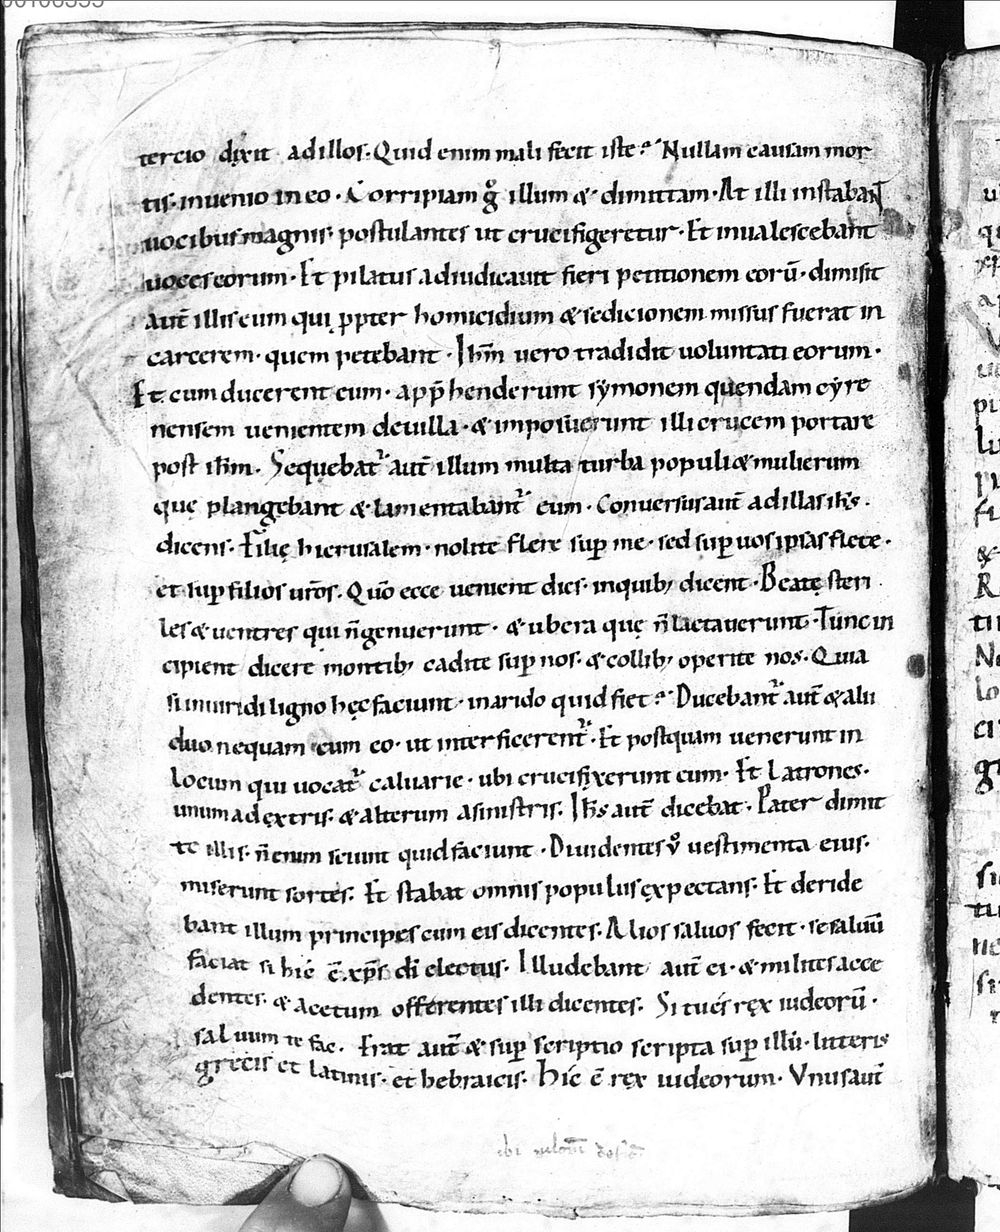 00106535
tercio dixit ad illos. Quid enim mali fecit iste? Nullam causam mor
tis inuenio in eo. Corripiam gͦ illum & dimittam. At illi instabant
uocibus magnis postulantes ut crucifigeretur. Et inualescebant
uoces eorum. Et pilatus adiudicauit fieri petitionem eorū. dimisit
aut̄ illis eum qui ꝓpter homicidium & sedicionem missus fuerat in
carcerem. quem petebant. Ihm̄ uero tradidit uoluntati eorum.
Et cum ducerent eum. app̄henderunt symonem quendam cyre
nensem uenientem de uilla. & imposuerunt illi crucem portare
post ihm̄. Sequebat᷑ aut̄ illum multa turba populi & mulierum
quę plangebant & lamentabant᷑ eum. Conuersus aut̄ ad illas ihs̄.
dicens. Filię hierusalem. nolite flere sup̄ me. sed sup̄ uos ipsas flete.
et sup̄ filios ur̄os. Quō ecce uenient dies. in quib; dicent. Beatę steri
les & uentres qui n̄ genuerunt. & ubera quę n̄ lactauerunt. Tunc in
cipient dicere montib; cadite sup̄ nos. & collib; operite nos. Quia
si in uiridi ligno hęc faciunt. in arido quid fiet? Ducebant᷑ aut̄ & alii
duo nequam cum eo. ut interficerent᷑. Et postquam uenerunt in
locum qui uocat᷑ caluarie. ubi crucifixerunt eum. Et latrones.
unum a dextris. & alterum a sinistris. Ihs̄ aut̄ dicebat. Pater dimit
te illis. n̄ enim sciunt quid faciunt. Diuidentes uͦ uestimenta eius.
miserunt sortes. Et stabat omnis populus ęxpectans. Et deride
bant illum principes cum eis dicentes. Alios saluos fecit. se saluū
faciat si hic ē xp̄s dī electus. Illudebant aut̄ ei. & milites acce
dentes. & acetum offerentes illi dicentes. Si tu és ręx iudeorū.
saluum te fac. Erat aut̄ & sup̄scriptio scripta sup̄ illū. litteris
grecis et latinis. et hebraicis. Hic ē ręx iudeorum. Vnus aut̄